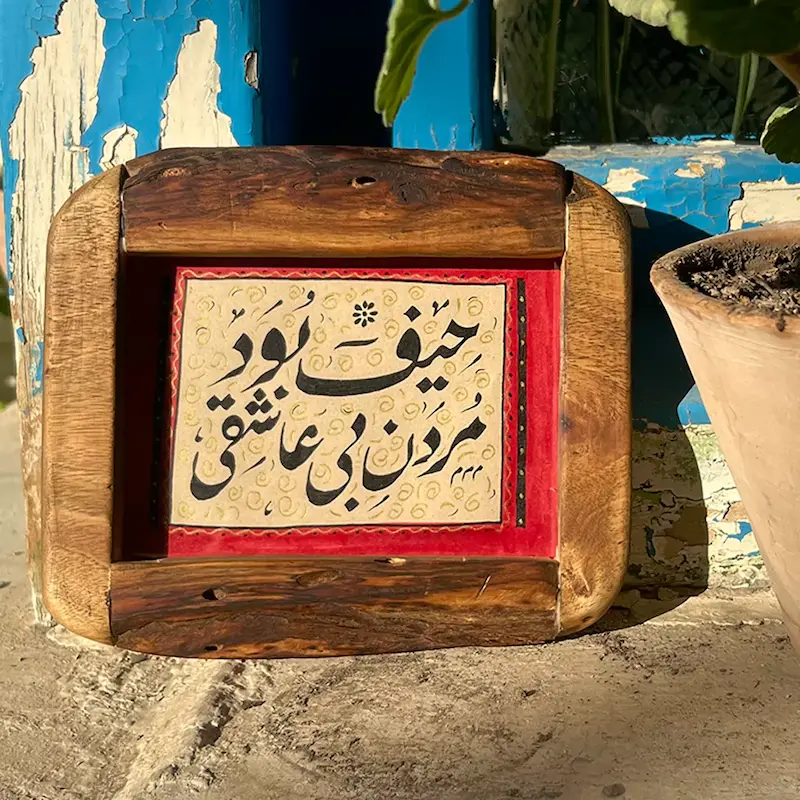 حیف بُوَد
مُردَن بی عاشقی